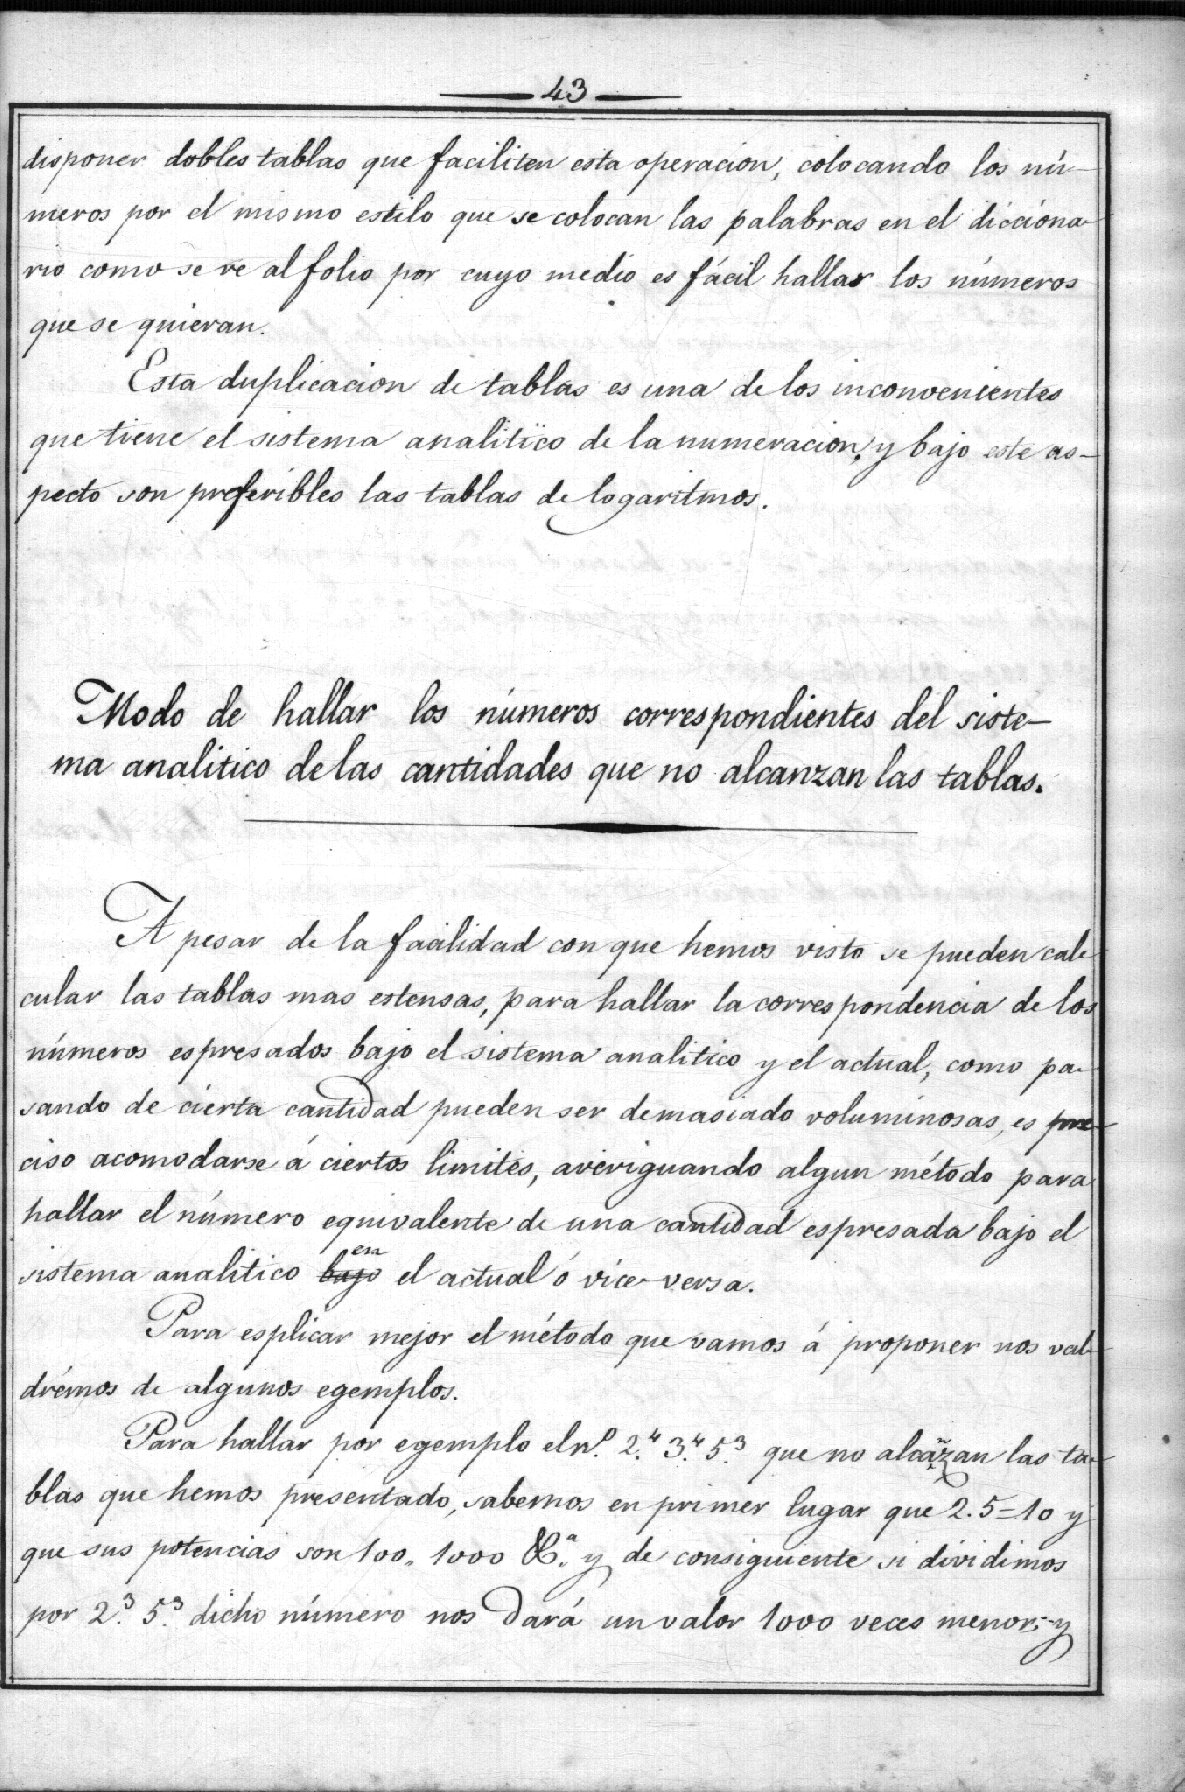 43
disponer dobles tablas que faciliten esta operacion, colocando los nú-
meros por el mismo estilo que se colocan las palabras en el dicciona-
rio como se ve al folio por cuyo medio es fácil hallar los números
que se quieran.
Esta duplicacion de tablas es una de los inconvenientes
que tiene el sistema analitico de la numeracion, y bajo este as-
pecto son preferibles las tablas de logaritmos.
Modo de hallar los números correspondientes del siste-
ma analitico de las cantidades que no alcanzan las tablas.
A pesar de la facilidad con que hemos visto se pueden cal-
cular las tablas mas estensas, para hallar la correspondencia de los
números espresados bajo el sistema analitico y el actual, como pa-
sando de cierta cantidad pueden ser demasiado voluminosas, es pre-
ciso acomodarse á ciertos limites, averiguando algun método para
hallar el número equivalente de una cantidad espresada bajo el
sistema analitico bajo en el actual ó vice-versa.
Para esplicar mejor el método que vamos á proponer nos val-
drémos de algunos egemplos.
Para hallar por egemplo el nº. 2.⁴ 3.⁴ 5.³ que no alcanzan las ta-
blas que hemos presentado, sabemos en primer lugar que 2.5=10 y
que sus potencias son 100, 1000 &ª. y de consiguiente si dividimos
por 2.³ 5.³ dicho número nos dará un valor 1000 veces menor, y